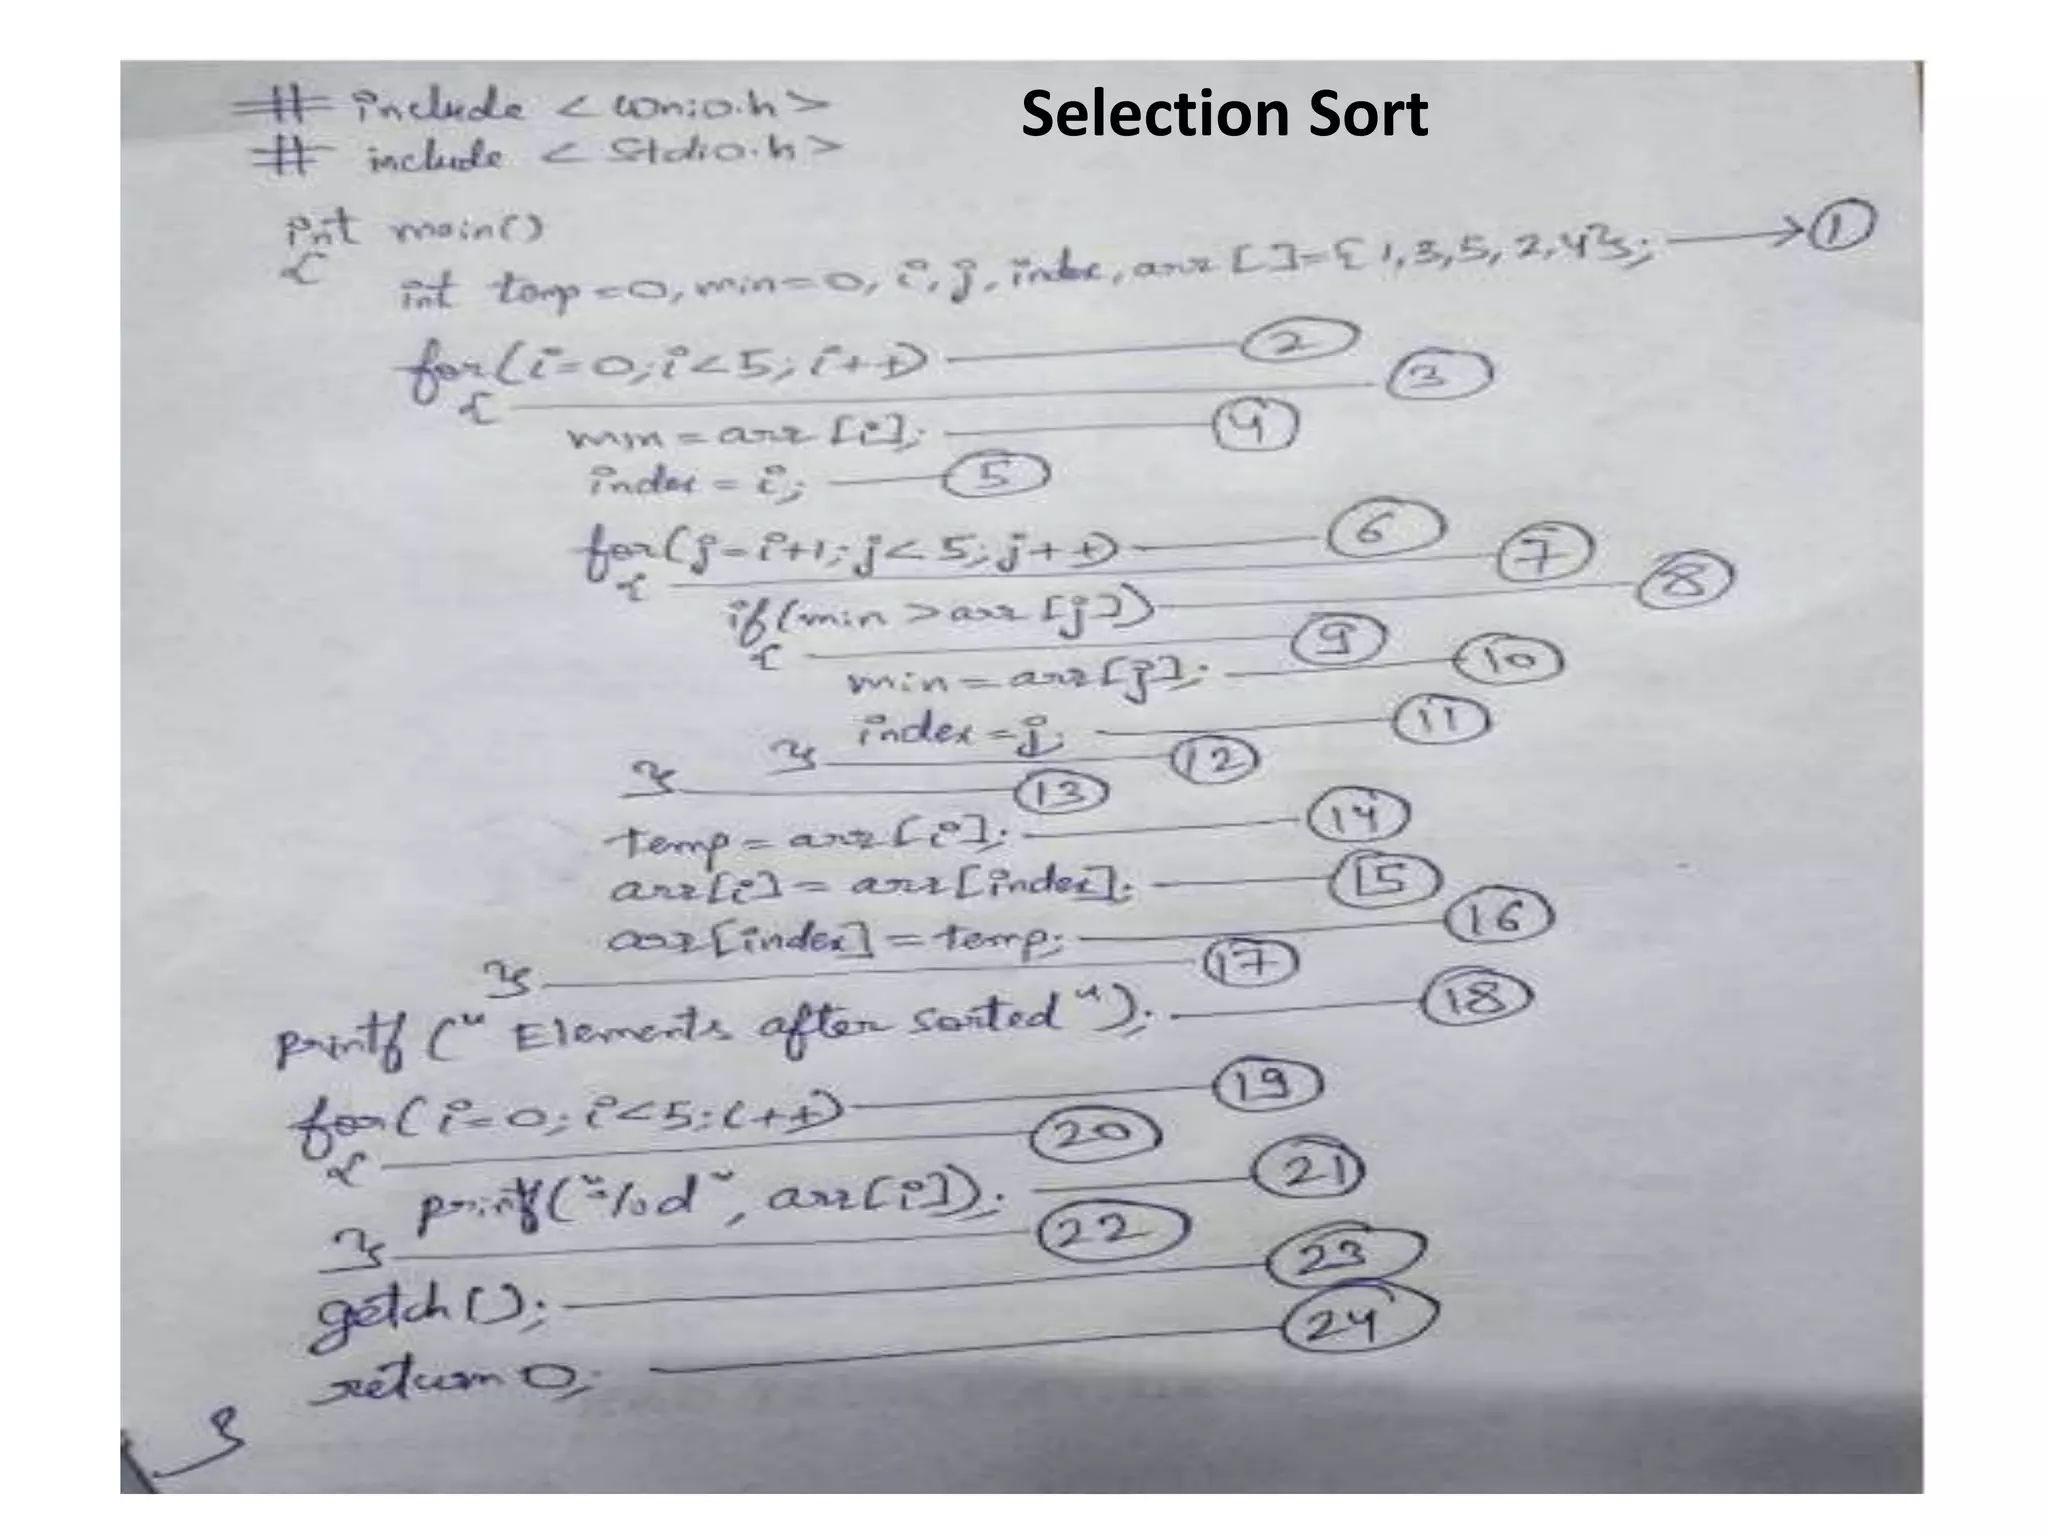 Selection Sort
# include <conio.h>
# include <stdio.h>
int main()
{
int temp=0, min=0, i, j, index, arr[]={1,3,5,2,4}; → 1
for(i=0;i<5;i++) 2
{ 3
min=arr[i]; 4
index=i; 5
for(j=i+1;j<5;j++) 6
{ 7
if(min>arr[j]) 8
{ 9
min=arr[j]; 10
index=j; 11
} 12
} 13
temp=arr[i]; 14
arr[i]=arr[index]; 15
arr[index]=temp; 16
} 17
printf("Elements after sorted"); 18
for(i=0;i<5;i++) 19
{ 20
printf("%d", arr[i]); 21
} 22
getch(); 23
return 0; 24
}